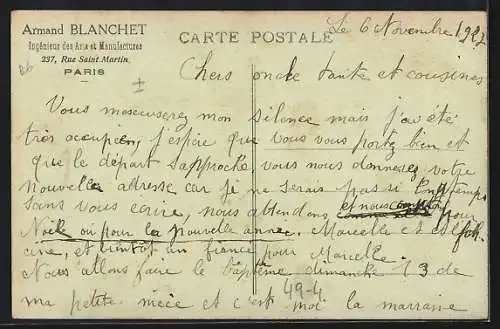 Armand BLANCHET
Ingénieur des Arts et Manufactures
237, Rue Saint Martin,
PARIS
CARTE POSTALE
Le 6 Novembre 1927
Chers oncle tante et cousines
Vous mexcuserez mon silence mais j'ai été
très occupée, j'espère que vous vous portez bien et
que le départ s'approche vous nous donnerez votre
nouvelle adresse car je ne serais pas si longtemps
sans vous ecrire, nous attendons et nous comptons pour
Noël ou pour la nouvelle année. Marcelle et
cine, et bientôt un fiancé pour Marcelle.
Nous allons faire le baptème dimanche 13 de
ma petite nièce et c'est moi la marraine
49-4